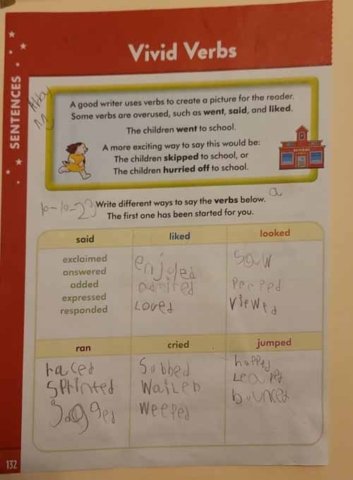 Vivid Verbs
SENTENCES
Abby
A good writer uses verbs to create a picture for the reader.
Some verbs are overused, such as went, said, and liked.
The children went to school.
A more exciting way to say this would be:
The children skipped to school, or
The children hurried off to school.
10-10-23
a
Write different ways to say the verbs below.
The first one has been started for you.
said liked looked
exclaimed
answered
added
expressed
responded
enjoied
admired
Loved
Saw
Peeped
Viewed
ran cried jumped
raced
SPrinted
Jogged
Sobbed
Wailed
Weeped
hopped
Leaped
bounced
132